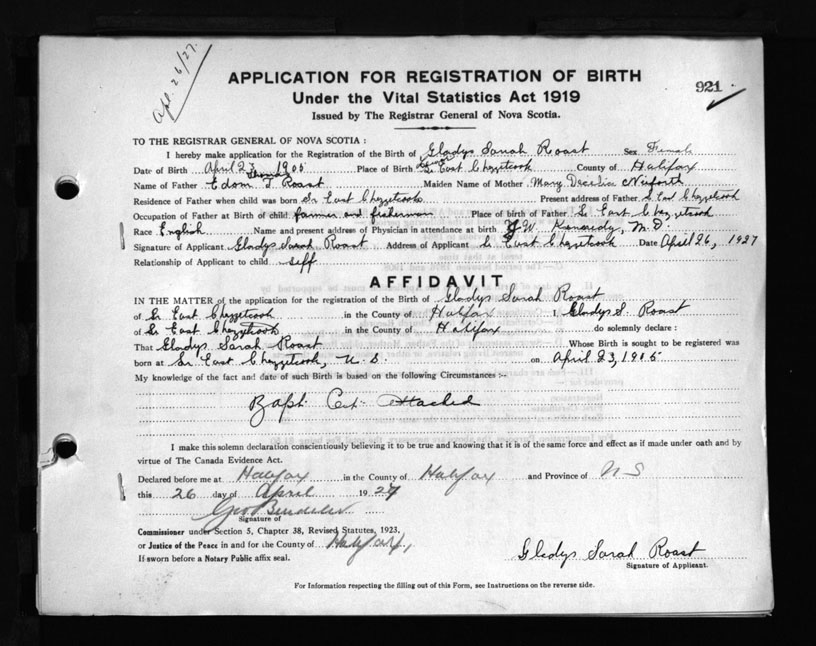 Apl. 26/27.
APPLICATION FOR REGISTRATION OF BIRTH
921
Under the Vital Statistics Act 1919
Issued by The Registrar General of Nova Scotia.
TO THE REGISTRAR GENERAL OF NOVA SCOTIA:
I hereby make application for the Registration of the Birth of Gladys Sarah Roast Sex Female
Date of Birth April 23 1905 Place of Birth East Chezzetcook County of Halifax
Name of Father Edom Roast Maiden Name of Mother Mary
Residence of Father when child was born East Chezzetcook Present address of Father East Chezzetcook
Occupation of Father at Birth of child farmer and fisherman Place of birth of Father East Chezzetcook
Race English Name and present address of Physician in attendance at birth W. Kennedy, M.D.
Signature of Applicant Gladys Sarah Roast Address of Applicant East Chezzetcook Date April 26, 1927
Relationship of Applicant to child self
AFFIDAVIT
IN THE MATTER of the application for the registration of the Birth of Gladys Sarah Roast
of East Chezzetcook in the County of Halifax I, Gladys S. Roast
of East Chezzetcook in the County of Halifax do solemnly declare:
That Gladys Sarah Roast Whose Birth is sought to be registered was
born at East Chezzetcook, N.S. on April 23, 1905
My knowledge of the fact and date of such Birth is based on the following Circumstances :-
Bapt. Cert. Attached
I make this solemn declaration conscientiously believing it to be true and knowing that it is of the same force and effect as if made under oath and by
virtue of The Canada Evidence Act.
Declared before me at Halifax in the County of Halifax and Province of N S
this 26 day of April 1927
Geo
Signature of
Commissioner under Section 5, Chapter 38, Revised Statutes, 1923,
or Justice of the Peace in and for the County of Halifax,
If sworn before a Notary Public affix seal.
Gladys Sarah Roast
Signature of Applicant.
For Information respecting the filling out of this Form, see Instructions on the reverse side.